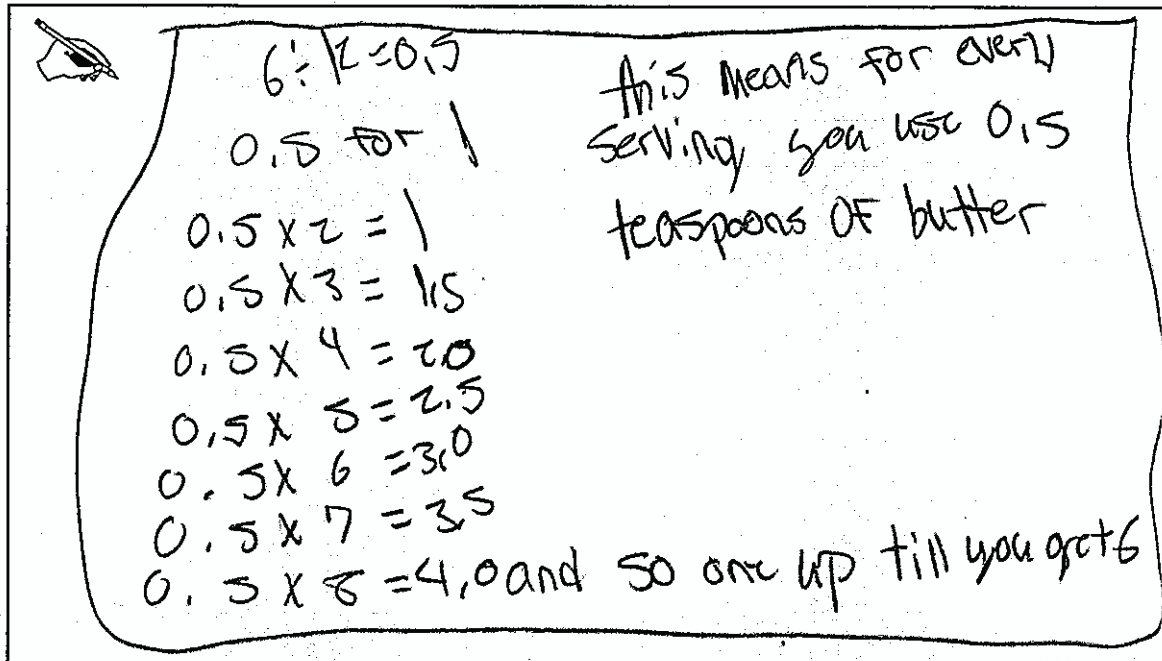 6 ÷ 12 = 0.5
0.5 for 1
0.5 x 2 = 1
0.5 x 3 = 1.5
0.5 x 4 = 2.0
0.5 x 5 = 2.5
0.5 x 6 = 3.0
0.5 x 7 = 3.5
0.5 x 8 = 4.0 and so one up till you get 6
this means for every
serving you use 0.5
teaspoons OF butter